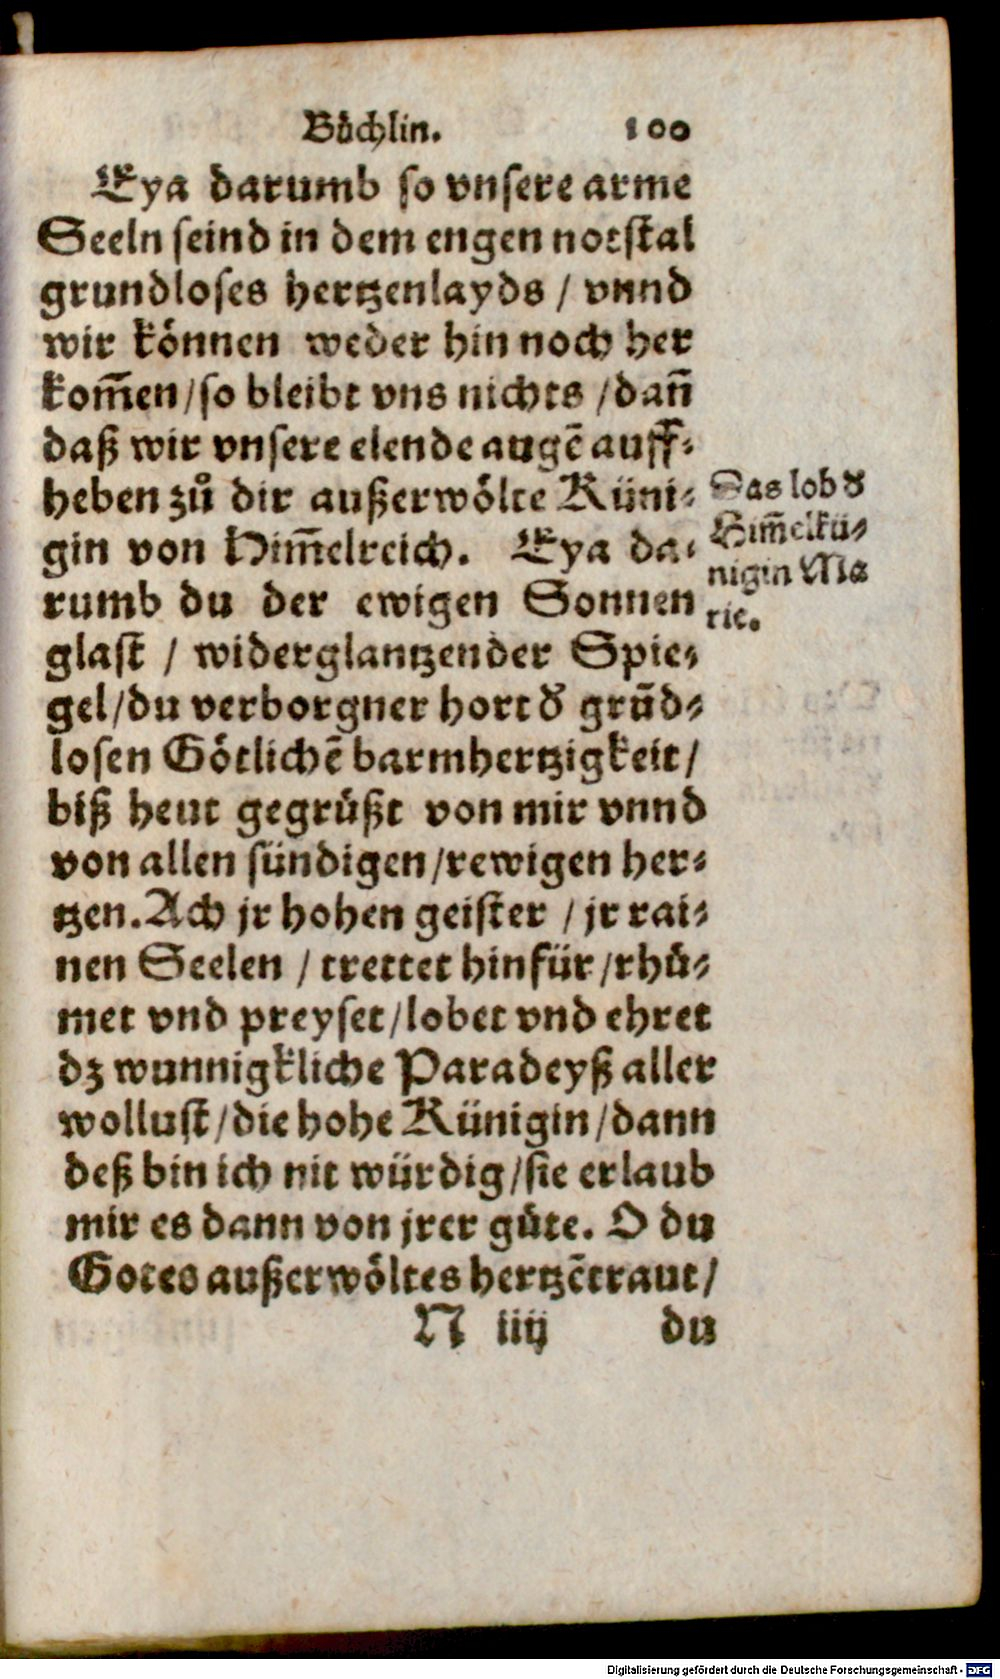 Bůchlin. 100
Eya darumb so vnsere arme
Seeln seind in dem engen notstal
grundloses hertzenlayds / vnnd
wir können weder hin noch her
kom̃en/so bleibt vns nichts /dañ
daß wir vnsere elende augẽ auff-
heben zů dir außerwölte Küni-
gin von Him̃elreich. Eya da-
rumb du der ewigen Sonnen
glast / widerglantzender Spie-
gel/du verborgner hort d' grũd-
losen Götlichẽ barmhertzigkeit/
biß heut gegrůßt von mir vnnd
von allen sündigen/rewigen her-
tzen. Ach jr hohen geister / jr rai-
nen Seelen / trettet hinfür/rhů-
met vnd preyset/lobet vnd ehret
dz wunnigkliche Paradeyß aller
wollust/die hohe Künigin/dann
deß bin ich nit würdig/sie erlaub
mir es dann von jrer gůte. O du
Gotes außerwöltes hertzẽtraut/
N iiij du
Das lob d'
Him̃elkü-
nigin Ma
rie.
Digitalisierung gefördert durch die Deutsche Forschungsgemeinschaft - DFG